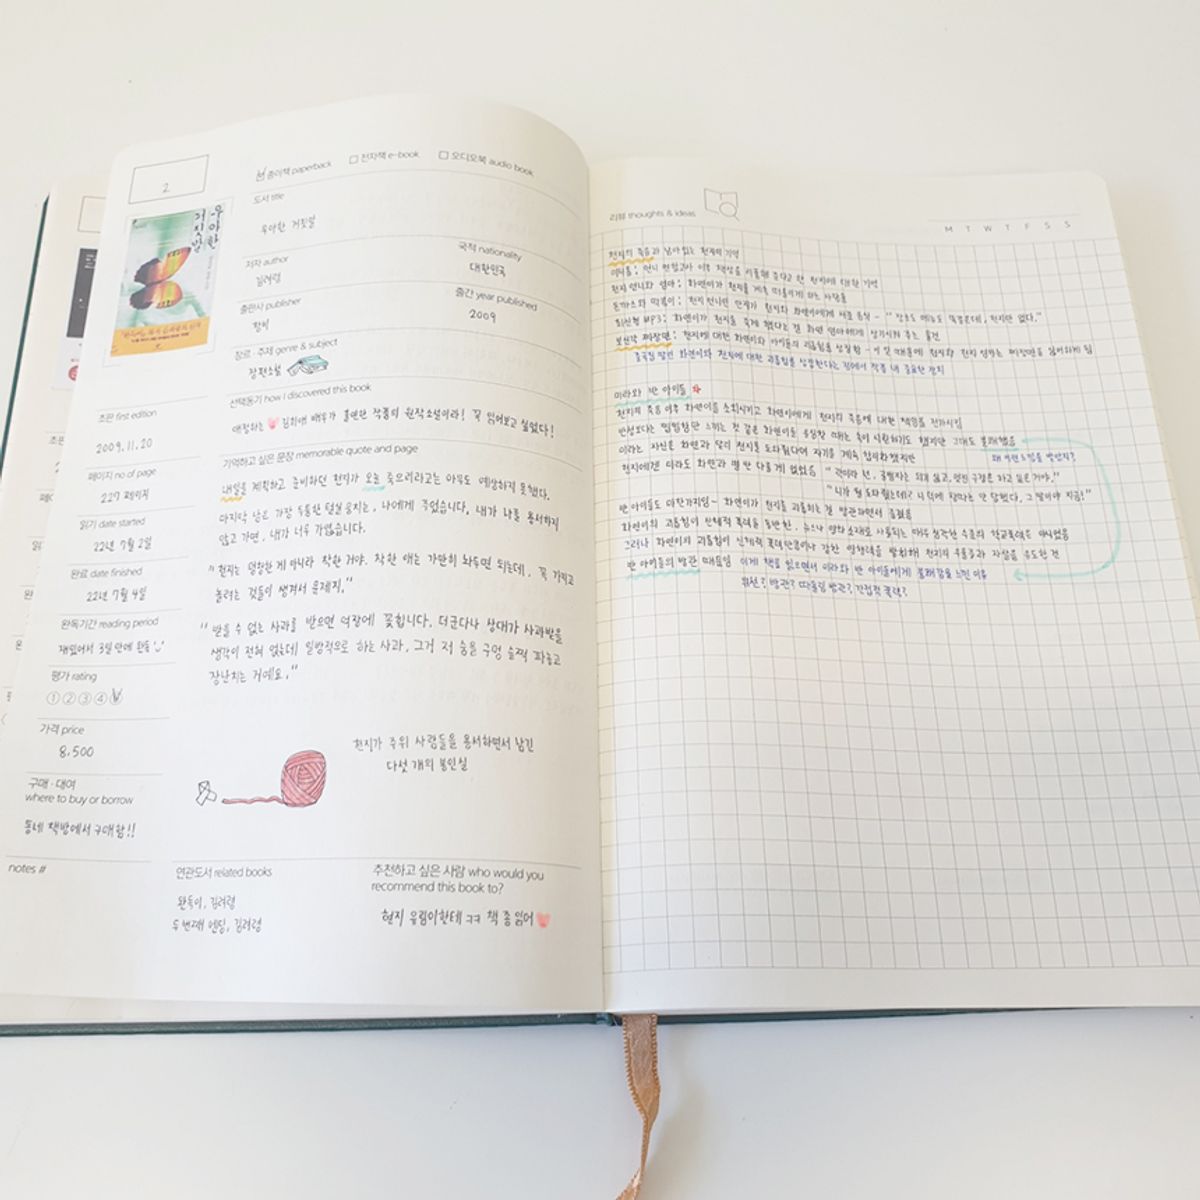 2
우아한
거짓말
종이책 paperback
전자책 e-book
오디오북 audio book
도서 title
우아한 거짓말
저자 author
김려령
국적 nationality
대한민국
출판사 publisher
창비
출간 year published
2009
장르·주제 genre & subject
장편소설
선택동기 how I discovered this book
애정하는 김희애 배우가 출연한 작품의 원작소설이라! 꼭 읽어보고 싶었다!
기억하고 싶은 문장 memorable quote and page
내일을 계획하고 준비하던 천지가 오늘 죽으리라고는 아무도 예상하지 못했다.
마지막 남은 가장 두툼한 털실 뭉치는, 나에게 주었습니다. 내가 나를 용서하지
않고 가면, 내가 너무 가엾습니다.
"천지는 멍청한 게 아니라 착한 거야. 착한 애는 가만히 놔두면 되는데, 꼭 가지고
놀려는 것들이 생겨서 문제지."
"받을 수 없는 사과를 받으면 억장에 꽂힙니다. 더군다나 상대가 사과받을
생각이 전혀 없는데 일방적으로 하는 사과, 그거 저 숨을 구멍 슬쩍 파놓고
장난치는 거예요."
천지가 주위 사람들을 용서하면서 남긴
다섯 개의 봉인실
초판 first edition
2009.11.20
페이지 no of page
227 페이지
읽기 date started
22년 7월 2일
완료 date finished
22년 7월 4일
완독기간 reading period
재밌어서 3일 만에 완독
평가 rating
1 2 3 4
가격 price
8,500
구매·대여
where to buy or borrow
동네 책방에서 구매함!!
notes #
연관도서 related books
완득이, 김려령
두 번째 엔딩, 김려령
추천하고 싶은 사람 who would you
recommend this book to?
현지 유림이한테 ㅋㅋ 책 좀 읽어
리뷰 thoughts & ideas
M T W T F S S
천지의 죽음과 남아있는 천지의 기억
천지 언니와 엄마: 화연이가 천지를 계속 떠올리게 하는 사람들
최신형 MP3: 화연이가 천지를 죽게 했다는 걸 화연 엄마에게 상기시켜 주는 물건
보신각 짜장면: 천지에 대한 화연이와 아이들의 괴롭힘을 상징함
미라와 반 아이들
천지의 죽음 이후 화연이를 소외시키고 화연이에게 천지의 죽음에 대한 책임을 전가시킴
미라는 자신은 화연과 달리 천지를 도와줬다며 자기를 계속 합리화했지만
천지에겐 미라도 화연과 별 반 다를 게 없었음
반 아이들도 마찬가지임- 화연이가 천지를 괴롭히는 걸 방관하면서 즐겼음
반 아이들의 방관 때문임 이게 책을 읽으면서 미라와 반 아이들에게 불쾌감을 느낀 이유
위선? 방관? 따돌림 방관? 간접적 폭력?